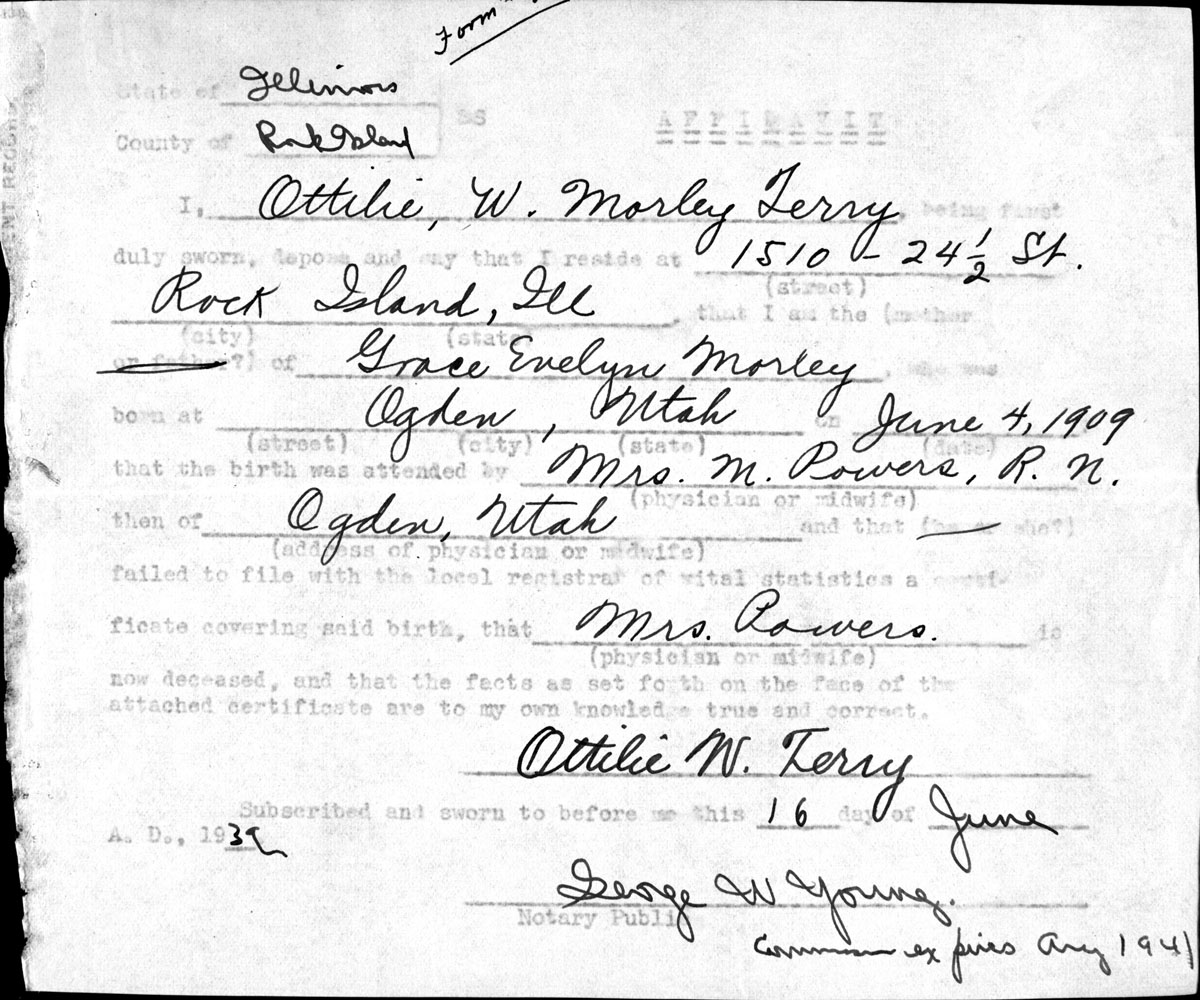 Form
State of Illinois
SS AFFIDAVIT
County of Rock Island
I, Ottilie, W. Morley Terry, being first
duly sworn, depose and say that I reside at 1510 - 24 1/2 St.
(street)
Rock Island, Ill, that I am the (mother
(city) (state
or father?) of Grace Evelyn Morley, who was
born at Ogden, Utah on June 4, 1909
(street) (city) (state) (date)
that the birth was attended by Mrs. M. Powers, R. N.
(physician or midwife)
then of Ogden, Utah and that (he or she?)
(address of physician or midwife)
failed to file with the local registrar of vital statistics a certi-
ficate covering said birth, that Mrs. Powers. is
(physician or midwife)
now deceased, and that the facts as set forth on the face of the
attached certificate are to my own knowledge true and correct.
Ottilie W. Terry
Subscribed and sworn to before me this 16 day of June
A. D., 1939
George W Young.
Notary Public
expires Aug 1941